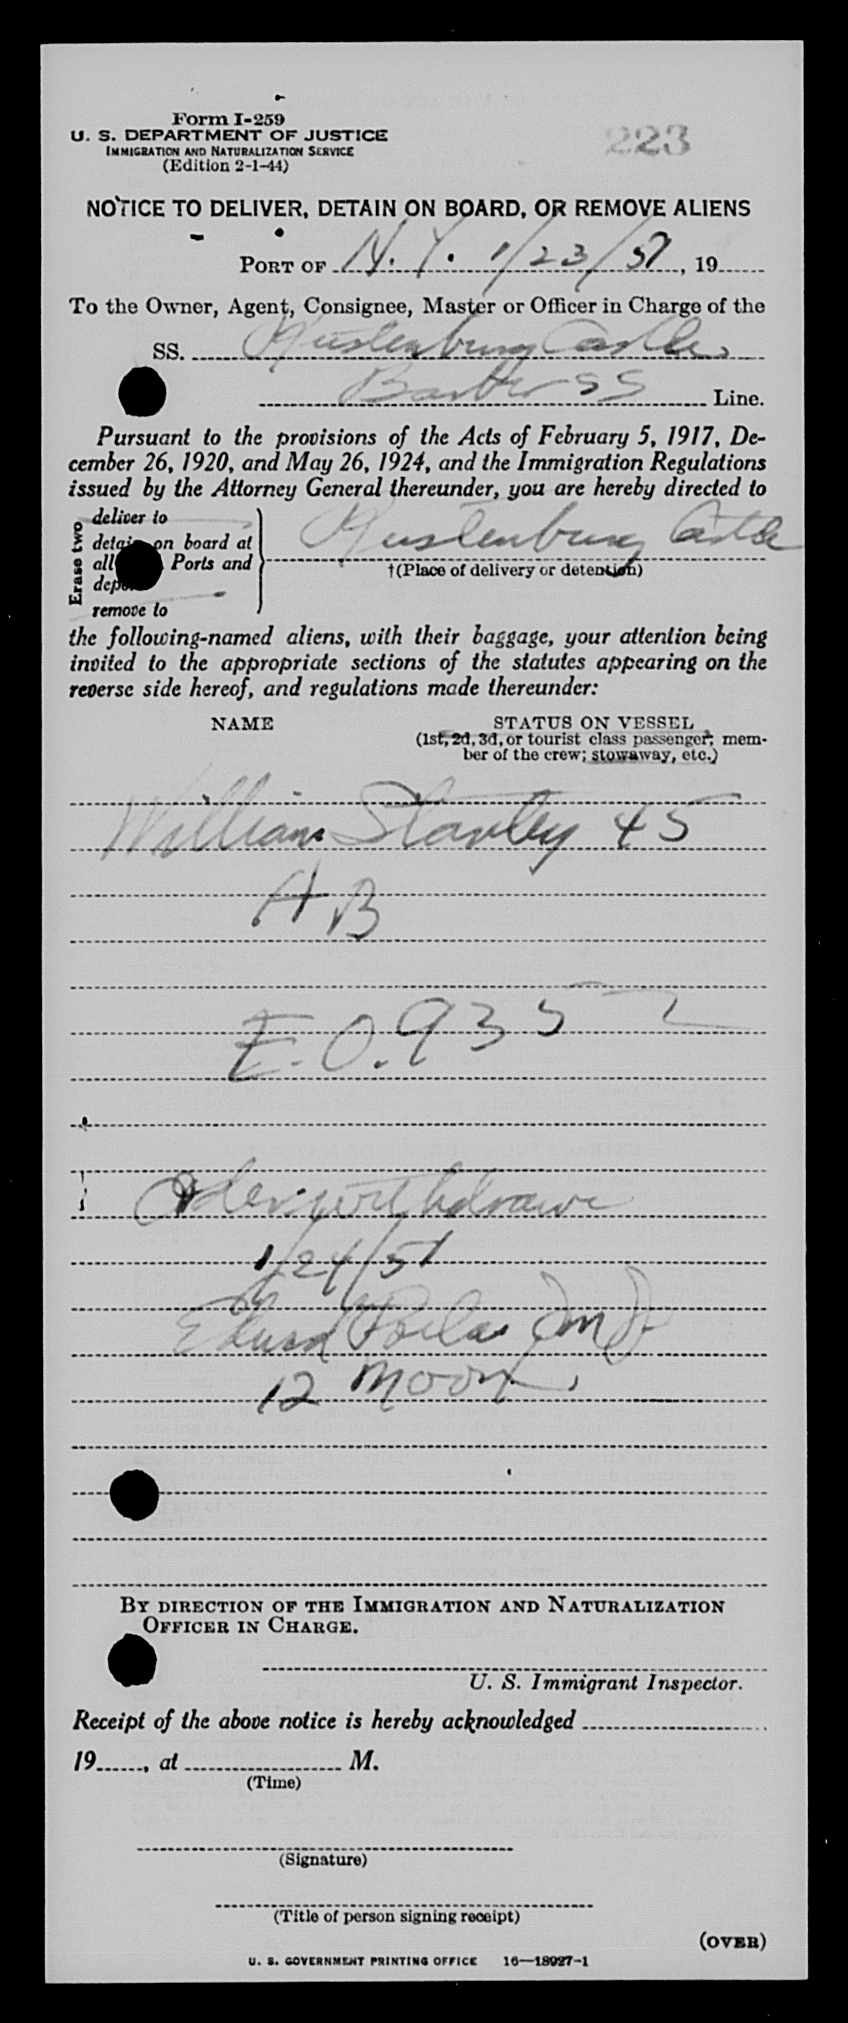 Form I-259
U. S. DEPARTMENT OF JUSTICE
IMMIGRATION AND NATURALIZATION SERVICE
(Edition 2-1-44)
223
NOTICE TO DELIVER, DETAIN ON BOARD, OR REMOVE ALIENS
PORT OF N. Y. 1/23/51, 19
To the Owner, Agent, Consignee, Master or Officer in Charge of the
SS. Rustenburg Castle
SS Line.
Pursuant to the provisions of the Acts of February 5, 1917, De-
cember 26, 1920, and May 26, 1924, and the Immigration Regulations
issued by the Attorney General thereunder, you are hereby directed to
Erase two
deliver to
detain on board at
all Ports and
remove to
Rustenburg Castle
†(Place of delivery or detention)
the following-named aliens, with their baggage, your attention being
invited to the appropriate sections of the statutes appearing on the
reverse side hereof, and regulations made thereunder:
NAME STATUS ON VESSEL
(1st, 2d, 3d, or tourist class passenger; mem-
ber of the crew; stowaway, etc.)
William Stanley 45
A B
E. O. 9352
Order withdrawn
1/24/51
12 Noon
BY DIRECTION OF THE IMMIGRATION AND NATURALIZATION
OFFICER IN CHARGE.
U. S. Immigrant Inspector.
Receipt of the above notice is hereby acknowledged
19, at M.
(Time)
(Signature)
(Title of person signing receipt)
(OVER)
U. S. GOVERNMENT PRINTING OFFICE 16—18927-1